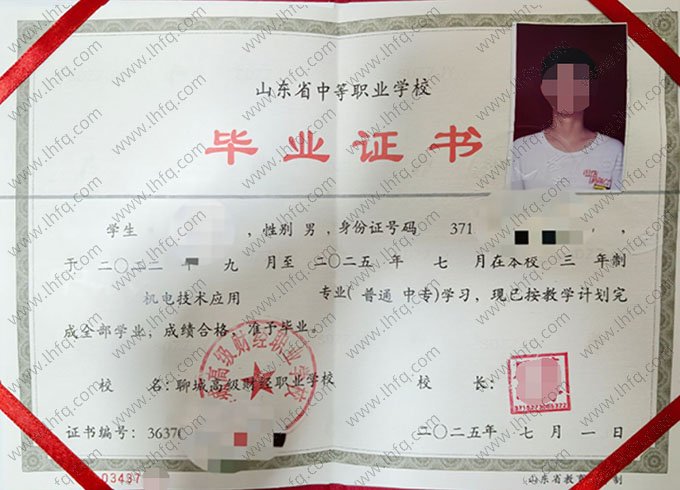 山东省中等职业学校
毕业证书
学生 ，性别 男，身份证号码 371 ，
于 二〇二二 年 九 月至 二〇二五 年 七 月在本校 三 年制
机电技术应用 专业( 普通 中专)学习，现已按教学计划完
成全部学业，成绩合格，准予毕业。
校 名：聊城高级财经职业学校 校 长：
高级财经职业学校
3715273085322
证书编号：3637 二〇二五年 七 月 一 日
03437 山东省教育 制
www.lhfq.com